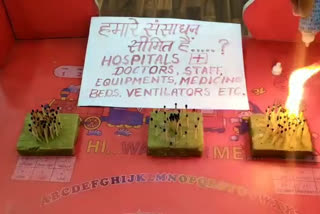 हमारे संसाधन
सीमित हैं.....?
HOSPITALS [+]
DOCTORS, STAFF,
EQUIPMENTS, MEDICINE
BEDS, VENTILATORS ETC.
ABCDEFGHIJKLMNOPQRSTU